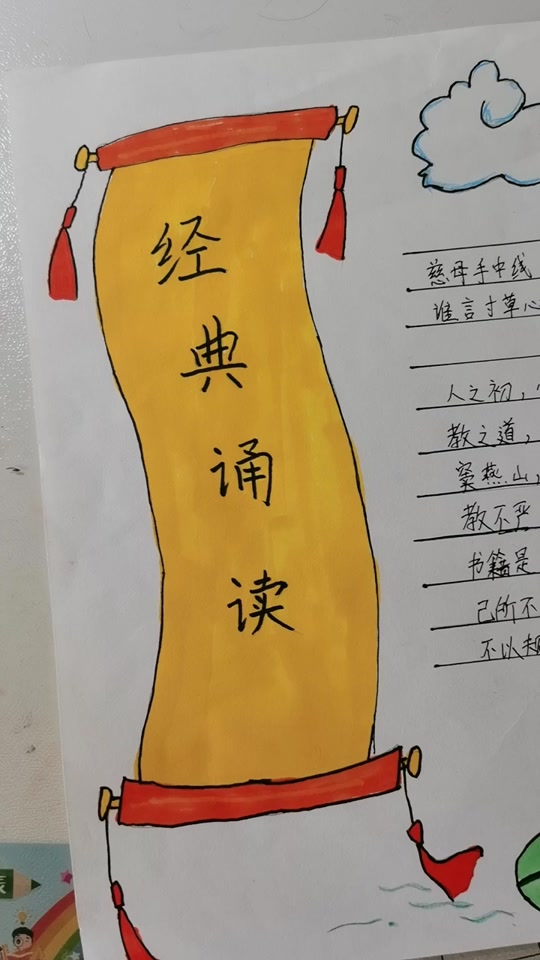 经典诵读
慈母手中线
谁言寸草心
人之初，
教之道，
窦燕山，
教不严
书籍是
己所不
不以规